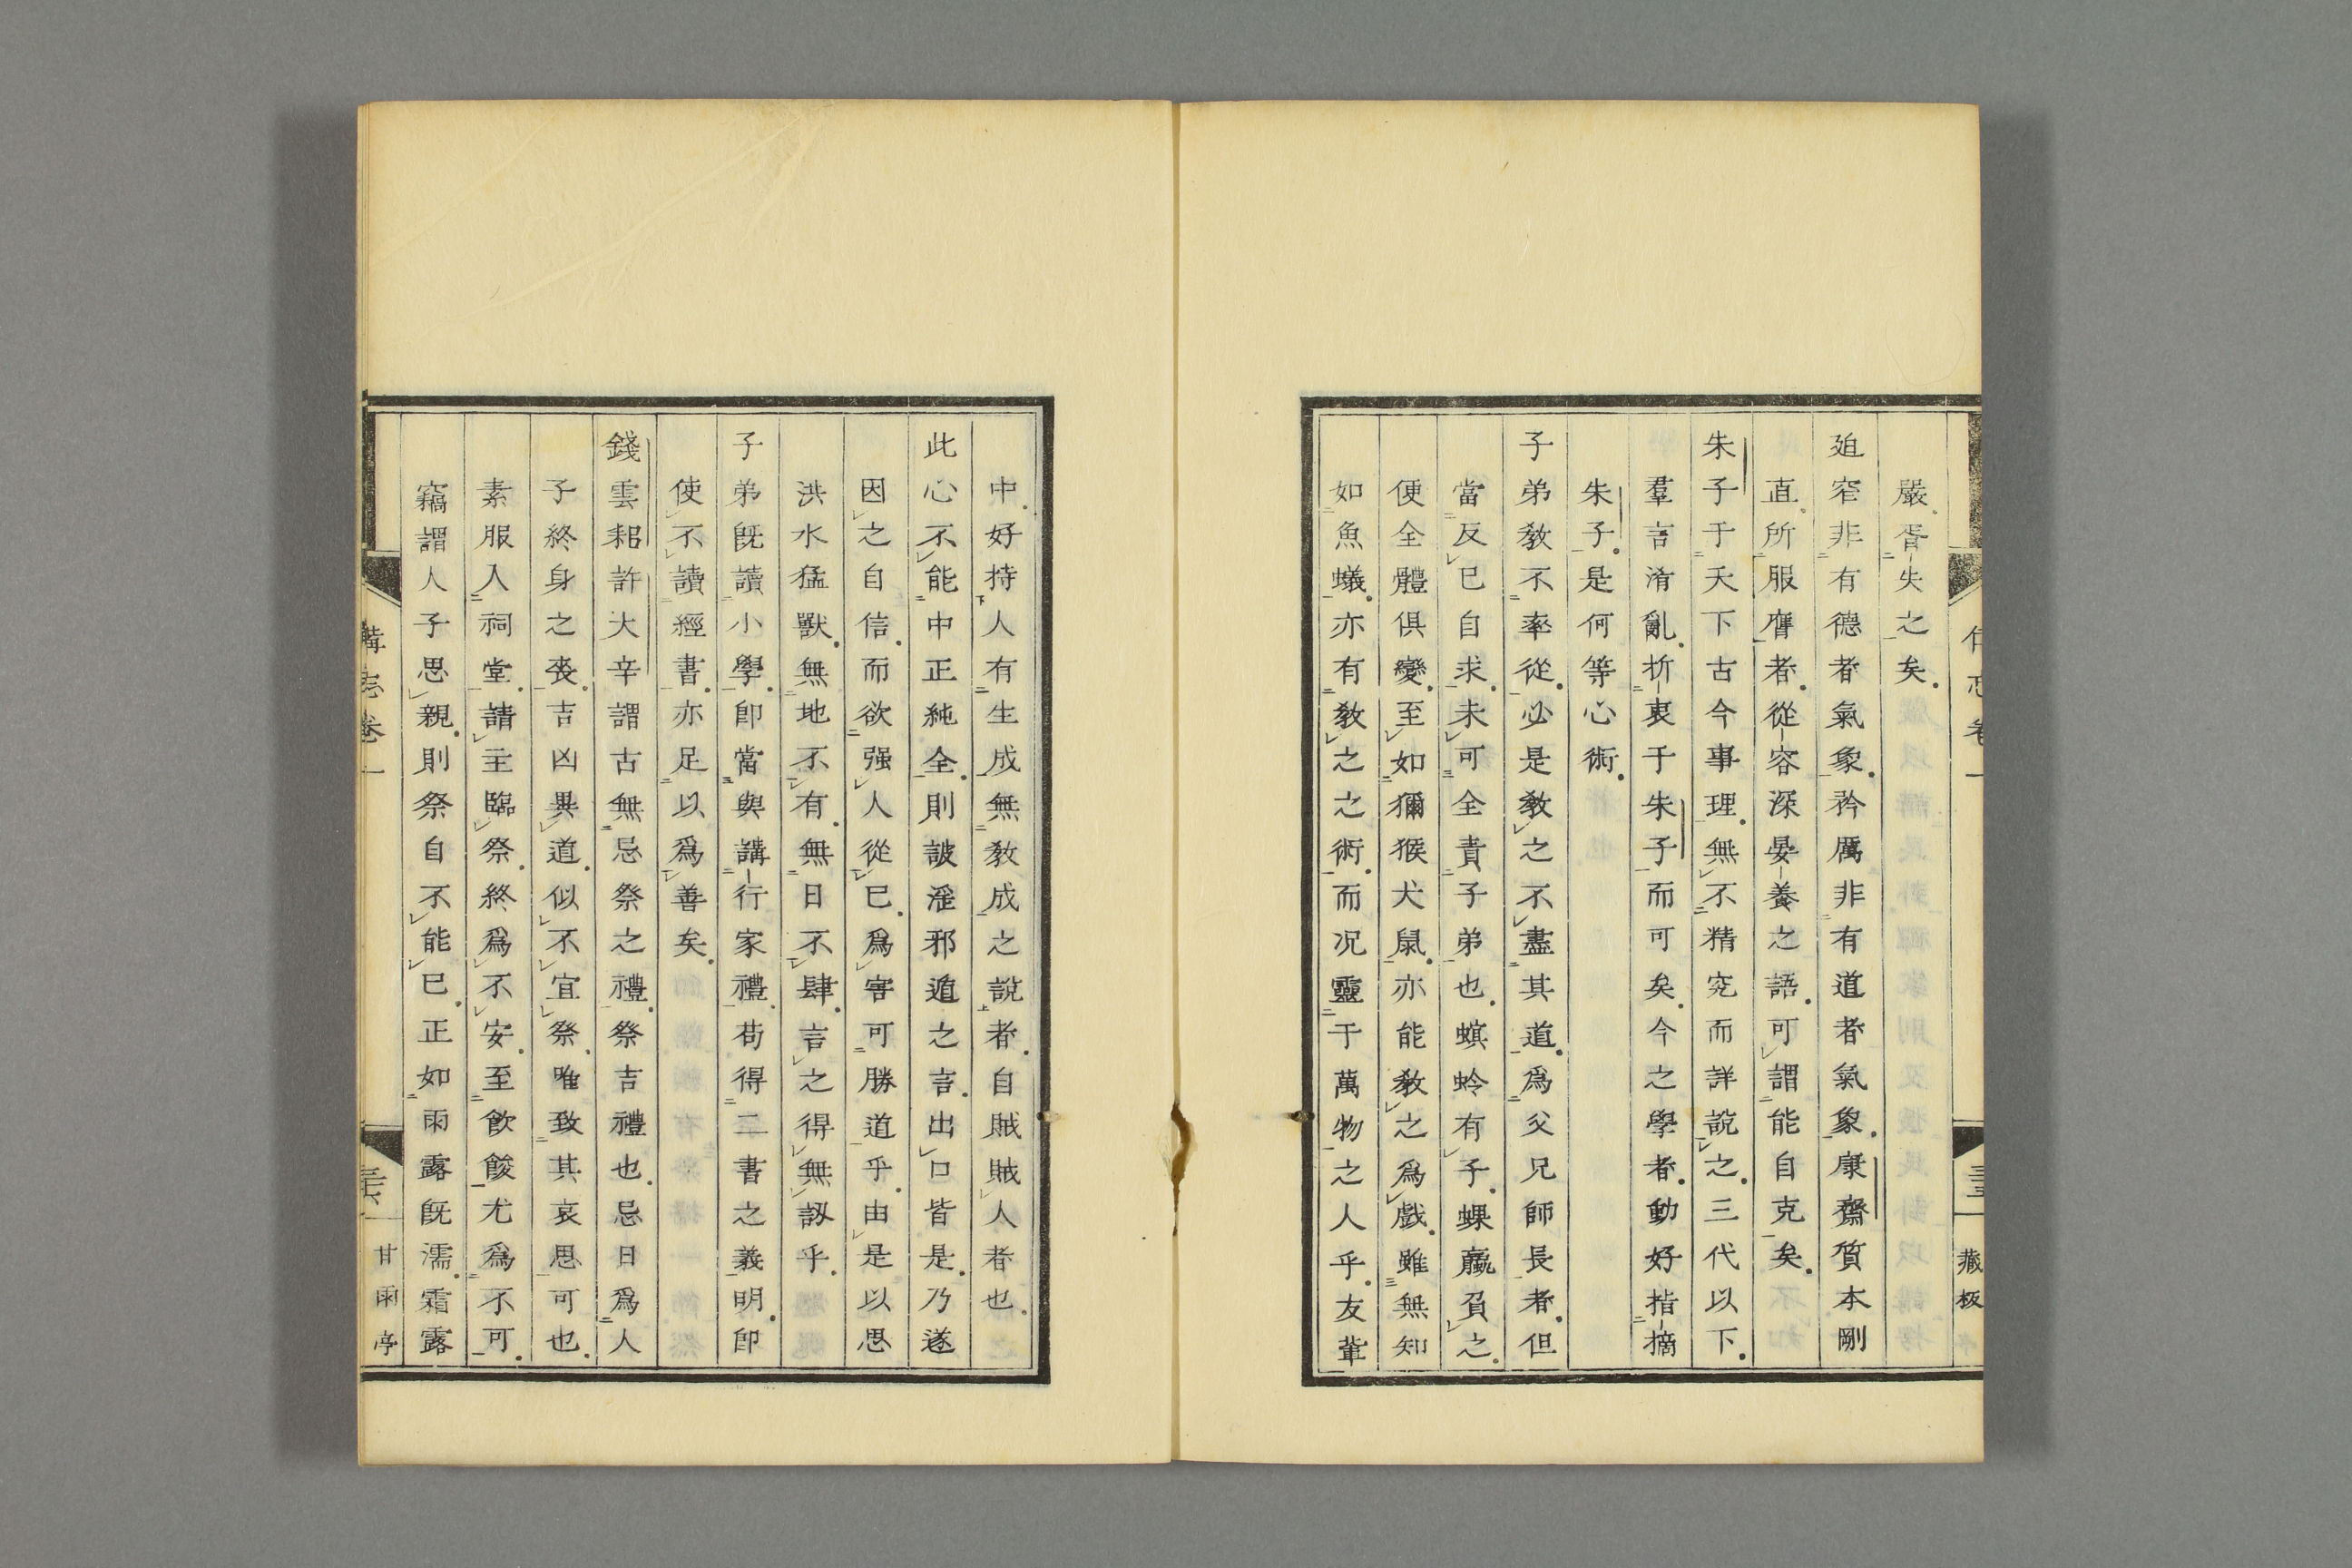 嚴胥失之矣
廹窄非有德者氣象矜厲非有道者氣象康齋質本剛
直所服膺者從容深晏養之語可謂能自克矣
朱子于天下古今事理無不精究而詳說之三代以下
羣言淆亂折衷于朱子而可矣今之學者動好指摘
朱子是何等心術
子弟敎不率從必是敎之不盡其道爲父兄師長者但
當反已自求未可全責子弟也螟蛉有子蜾蠃負之
便全體俱變至如獮猴犬鼠亦能敎之爲戲雖無知
如魚蟻亦有敎之之術而况靈于萬物之人乎友軰
中好持人有生成無敎成之說者自賊賊人者也
此心不能中正純全則詖淫邪遁之言出口皆是乃遂
因之自信而欲强人從已爲害可勝道乎由是以思
洪水猛獸無地不有無日不肆言之得無訒乎
子弟旣讀小學卽當與講行家禮茍得二書之義明卽
使不讀經書亦足以爲善矣
錢雲耜許大辛謂古無忌祭之禮祭吉禮也忌日爲人
子終身之喪吉凶異道似不宜祭唯致其哀思可也
素服入祠堂請主臨祭終爲不安至飮餕尤爲不可
竊謂人子思親則祭自不能已正如雨露旣濡霜露
甘雨亭
藏板